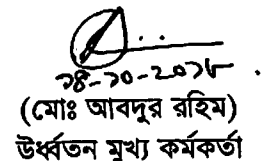 ১৪-১০-২০১৮.
(মোঃ আবদুর রহিম)
উর্ধ্বতন মুখ্য কর্মকর্তা